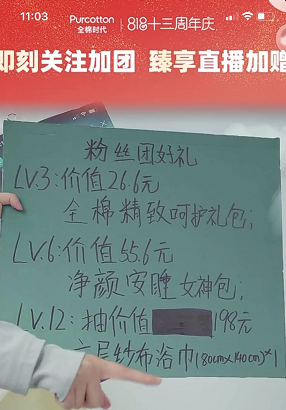 11:03
Purcotton
全棉时代
818十三周年庆
即刻关注加团 臻享直播加赠
粉丝团好礼
LV.3:价值26.6元
全棉精致呵护礼包;
LV.6:价值55.6元
净颜安睡女神包;
LV.12:抽价值 198元
六层纱布浴巾(80cm×140cm)*1